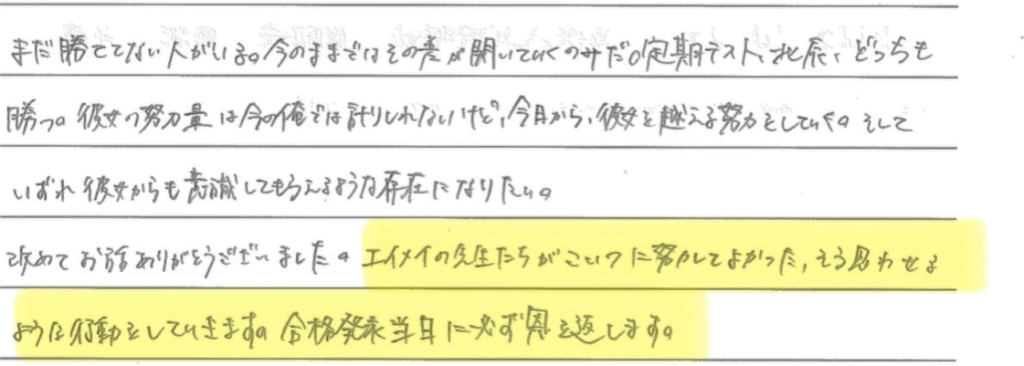 まだ勝ててない人がいる。今のままではその差が開いていくのみだ。定期テスト、北辰、どっちも
勝つ。彼女の努力量は今の俺では計りしれないけど、今日から、彼女を越える努力をしていく。そして
いずれ彼女からも意識してもらえるような存在になりたい。
改めてお話ありがとうございました。エイメイの先生たちがこいつに努力してよかった、そう思わせる
ような行動をしていきます。合格発表当日に必ず恩を返します。